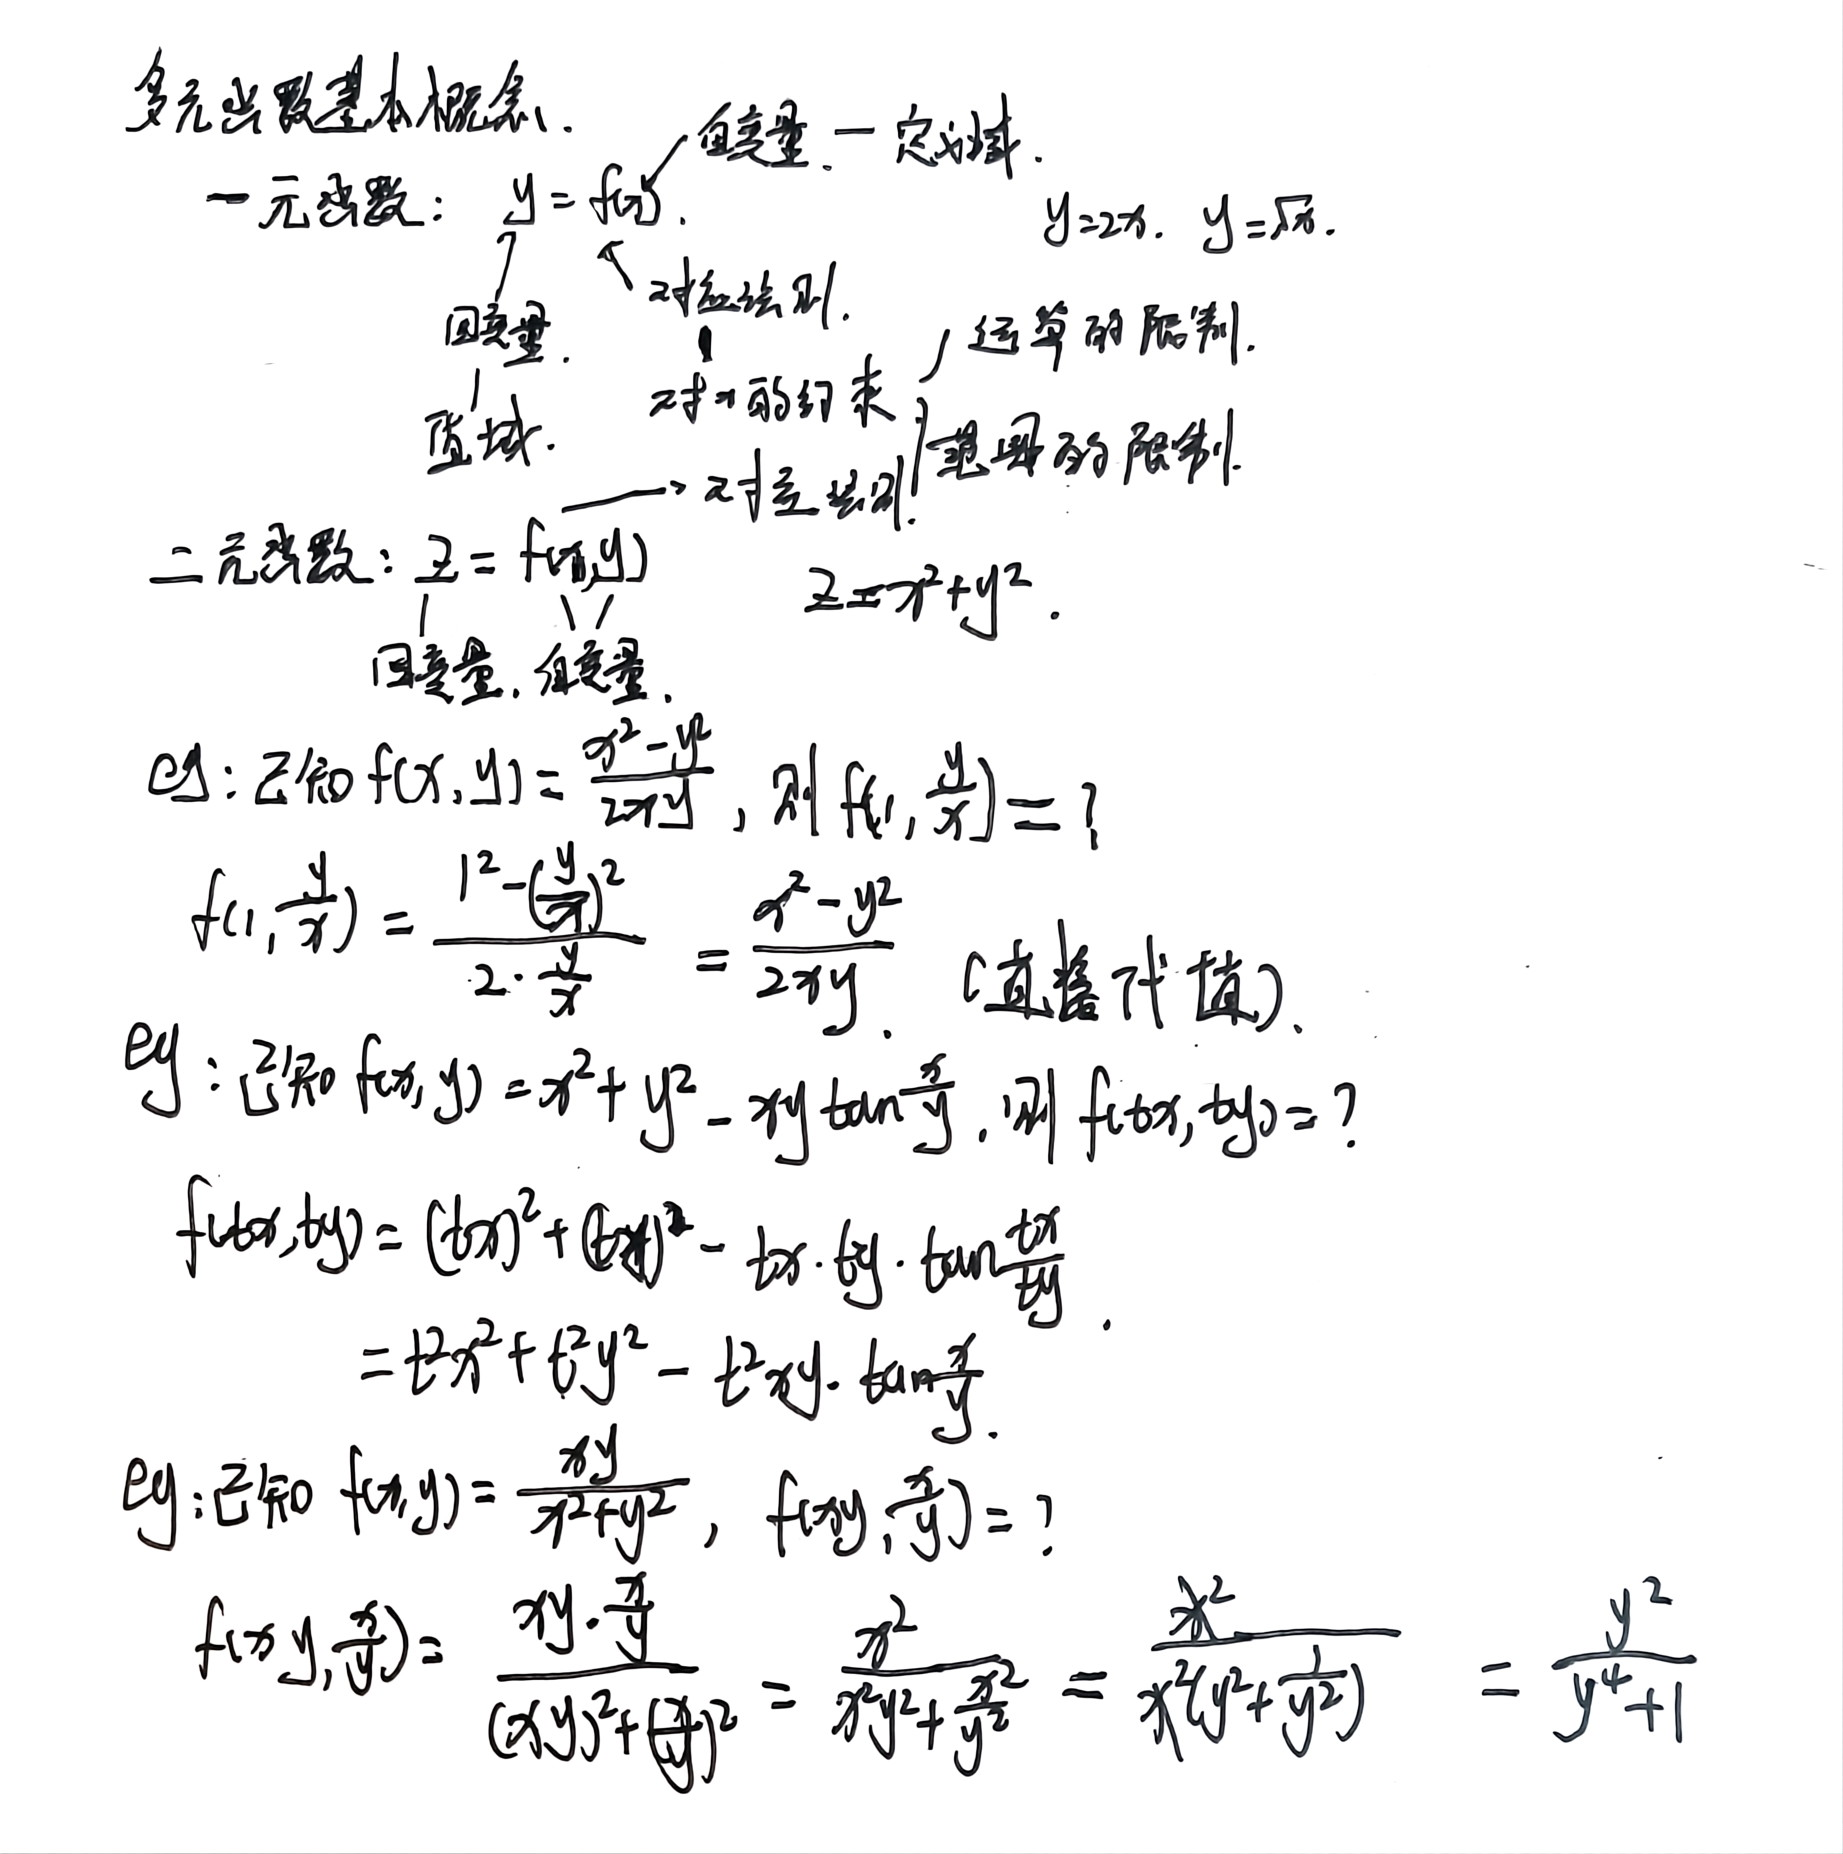 多元函数基本概念.
自变量.一定义域.
一元函数: y=f(x).
y=2x. y=√x.
对应法则.
因变量.
运算的限制.
对x的约束
值域.
题目的限制.
对应法则.
二元函数: z=f(x,y)
z=x²+y².
因变量. 自变量.
eg:已知f(x,y)=(x²-y²)/(2xy), 则f(1,y/x)=?
f(1,y/x)=(1²-(y/x)²)/(2·y/x)=(x²-y²)/(2xy). (直接代值).
eg:已知f(x,y)=x²+y²-xytan x/y.则f(tx,ty)=?
f(tx,ty)=(tx)²+(ty)²-tx·ty·tan tx/ty.
=t²x²+t²y²-t²xy·tan x/y.
eg:已知f(x,y)=xy/(x²+y²), f(xy,x/y)=?
f(xy,x/y)=(xy·x/y)/((xy)²+(x/y)²)=x²/(x²y²+x²/y²)=x²/(x²(y²+1/y²))=y²/(y⁴+1)